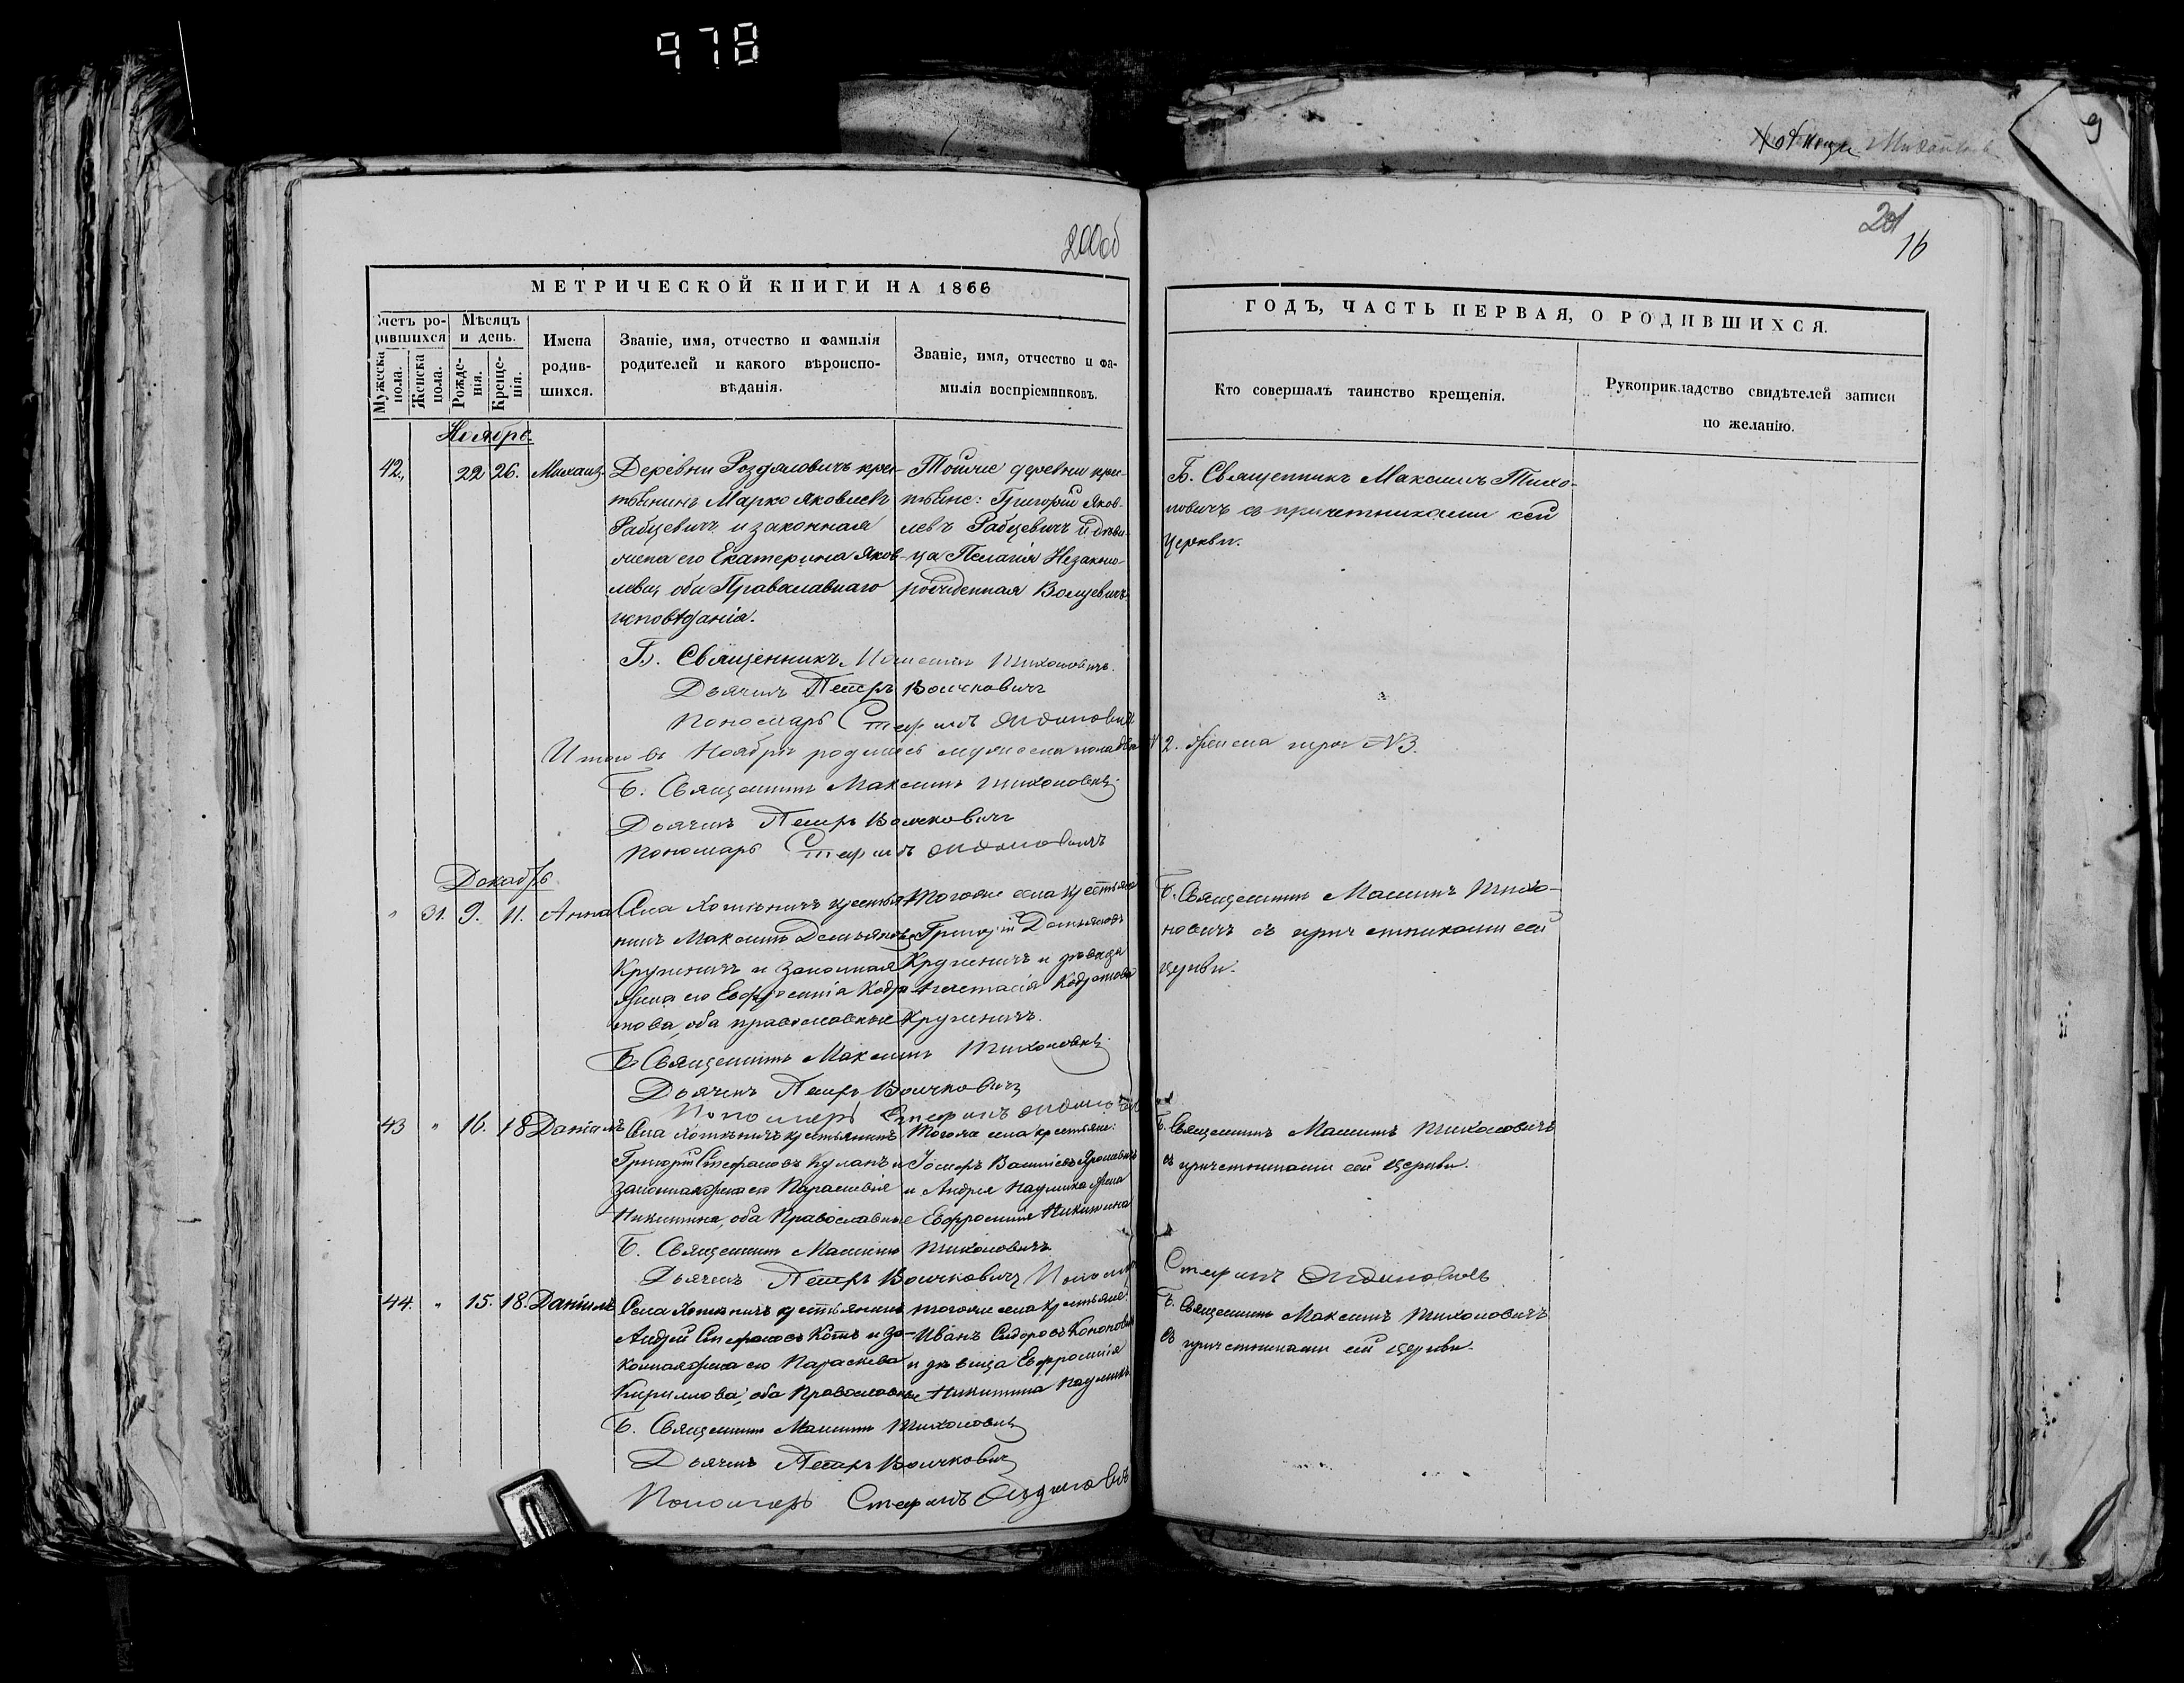 978
9
200об
201
16
МЕТРИЧЕСКОЙ КНИГИ НА 1866
ГОДЪ, ЧАСТЬ ПЕРВАЯ, О РОДИВШИХСЯ.
Счетъ родившихся
Мужеска пола.
Женска пола.
Мѣсяцъ и день.
Рожденія.
Крещенія.
Имена родившихся.
Званіе, имя, отчество и фамилія
родителей и какого вѣроисповѣданія.
Званіе, имя, отчество и фамилія воспріемниковъ.
Кто совершалъ таинство крещенія.
Рукоприкладство свидѣтелей записи
по желанію.
Ноябрь
42. 22 26. Михаил
Деревни Роздяловичъ крес-
тьянинъ Марко Яковлевъ
Рабцевичъ и законная
жена его Екатерина Яков-
лева, оба Православнаго
исповѣданія.
Тойже деревни крес-
тьяне: Григорій Яков-
левъ Рабцевичъ и дѣви-
ца Пелагія Незаконно-
рожденная
Б. Священникъ Максимъ Тихо-
новичъ съ причетниками сей
Церкви.
Б. Священникъ Максимъ Тихоновичъ.
Дьячекъ Петръ Волчковичъ
Пономарь Стефанъ
Итого въ Ноябрѣ родилось мужеска пола два №
2. женска три №3.
Б. Священникъ Максимъ Тихоновичъ
Дьячекъ Петръ Волчковичъ
Пономарь Стефанъ
Декабрь
" 31. 9. 11. Анна
Села Хотѣничъ крестья-
нинъ Максимъ Демьяновъ
Крученичъ и Законная
жена его Евфросинія Кодра-
това, оба православные
Тогоже села крестьяне
Григорій Демьяновъ
Крученичъ и дѣвица
Анастасія Кодратова
Крученичъ.
Б. Священникъ Максимъ Тихо-
новичъ съ причетниками сей
Церкви.
Б. Священникъ Максимъ Тихоновичъ
Дьячекъ Петръ Волчковичъ
Пономарь Стефанъ
43 " 16. 18 Даніилъ
Села Хотѣничъ крестьянинъ
Григорій Стефановъ Куланъ и
Законная жена его Параскевія
Никитина, оба Православные
Тогоже села крестьяне:
Іосифъ Василіевъ
и Андрея Наумика жена
Евфросинія Никитина
Б. Священникъ Максимъ Тихоновичъ
съ причетниками сей Церкви.
Б. Священникъ Максимъ Тихоновичъ
Дьячекъ Петръ Волчковичъ Пономарь
Стефанъ
44. " 15. 18. Даніилъ
Села Хотѣничъ крестьянинъ
Андрей Стефановъ Котъ и За-
конная жена его Параскева
Кириллова, оба Православные
тогоже села крестьяне:
Иванъ Сидоровъ Кононовичъ
и дѣвица Евфросинія
Никитина Наумикъ
Б. Священникъ Максимъ Тихоновичъ
съ причетниками сей Церкви.
Б. Священникъ Максимъ Тихоновичъ
Дьячекъ Петръ Волчковичъ
Пономарь Стефанъ